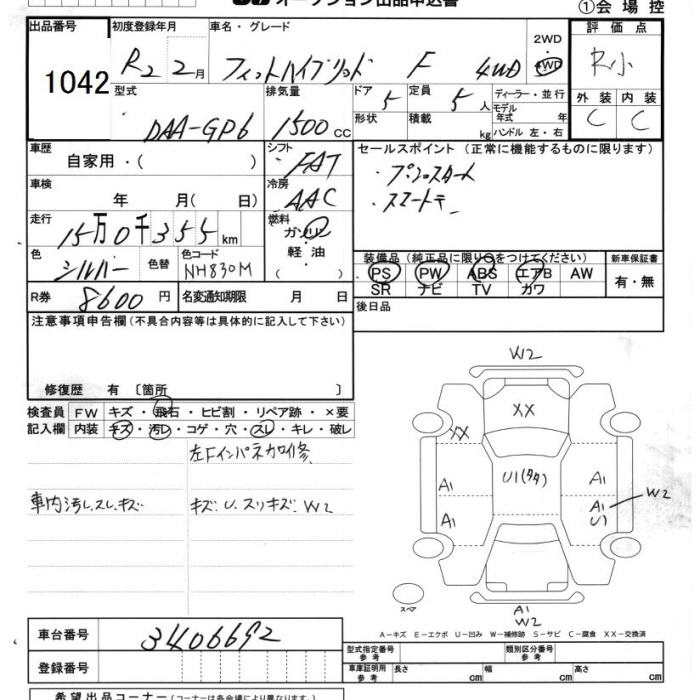 オークション出品申込書
①会場控
出品番号 初度登録年月 車名・グレード 評価点
1042 R2 2月 フィットハイブリッド F 4WD 2WD 4WD R小
型式 排気量 ドア 定員 ディーラー・並行 外装 内装
DAA-GP6 1500cc 5 5人 モデル年式 年 C C
形状 積載 kg ハンドル 左・右
車歴 シフト セールスポイント (正常に機能するものに限ります)
自家用・( ) FAT ・プッシュスタート
車検 冷房 ・スマートキー
年 月( 日) AAC
走行 燃料
15万0千355km ガソリン
色 色替 色コード 軽油 装備品 (純正品に限り○をつけてください) 新車保証書
シルバー NH830M ( ) PS PW ABS エアB AW 有・無
SR ナビ TV カワ
R券 8600円 名変通知期限 月 日 後日品
注意事項申告欄 (不具合内容等は具体的に記入して下さい)
修復歴 有 〔箇所 〕
検査員 FW キズ・飛石・ヒビ割・リペア跡・×要
記入欄 内装 キズ・汚レ・コゲ・穴・スレ・キレ・破レ
左Fインパネカロ修
車内汚レ.スレ.キズ キズ.U.スリキズ.W2
W2
XX
XX
U1(タタ)
A1 A1
A1 A1 U1 W2
スペア
A1
W2
A-キズ E-エクボ U-凹み W-補修跡 S-サビ C-腐食 XX-交換済
車台番号 3406692
型式指定番号 参考 類別区分番号 参考
登録番号 車庫証明用 参考 長さ cm 幅 cm 高さ cm
希望出品コーナー (コーナーは各会場により異なります)